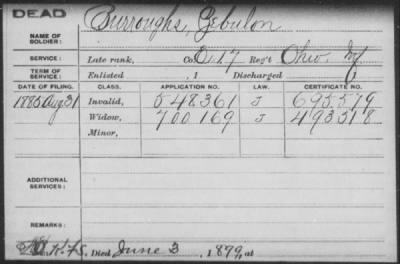 DEAD
NAME OF SOLDIER: Burroughs, Zebulon
SERVICE: Late rank, Co. D. 17 Reg't Ohio Inf
TERM OF SERVICE: Enlisted , 1 Discharged , 1
DATE OF FILING. CLASS. APPLICATION NO. LAW. CERTIFICATE NO.
1885 Aug 31 Invalid, 548.361 J 695.579
Widow, 700.169 J 493518
Minor,
ADDITIONAL SERVICES:
REMARKS:
Died June 3, 1899, at